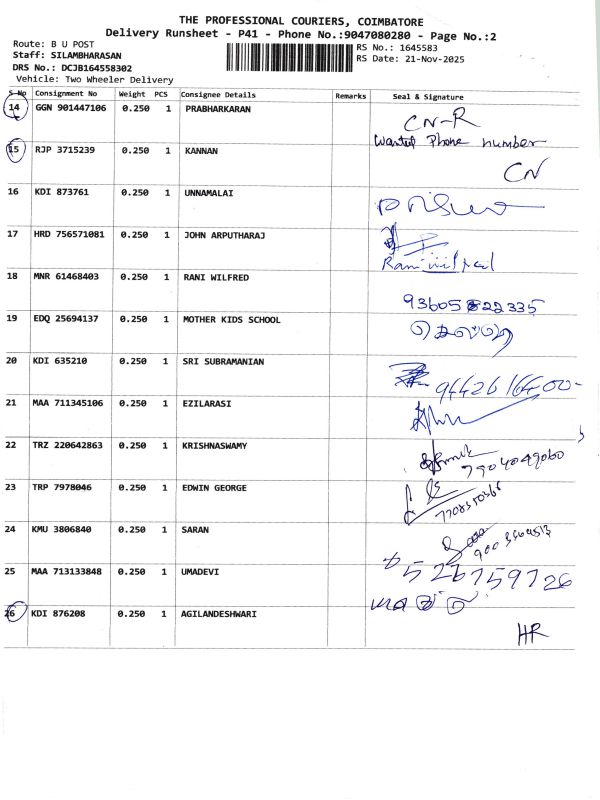 THE PROFESSIONAL COURIERS, COIMBATORE
Delivery Runsheet - P41 - Phone No.:9047080280 - Page No.:2
Route: B U POST
Staff: SILAMBHARASAN
DRS No.: DCJB164558302
Vehicle: Two Wheeler Delivery
RS No.: 1645583
RS Date: 21-Nov-2025
S No Consignment No Weight PCS Consignee Details Remarks Seal & Signature
14 GGN 901447106 0.250 1 PRABHARKARAN
CN-R
Wanted Phone number
15 RJP 3715239 0.250 1 KANNAN
CN
16 KDI 873761 0.250 1 UNNAMALAI
17 HRD 756571081 0.250 1 JOHN ARPUTHARAJ
Rani wilfred
18 MNR 61468403 0.250 1 RANI WILFRED
19 EDQ 25694137 0.250 1 MOTHER KIDS SCHOOL
20 KDI 635210 0.250 1 SRI SUBRAMANIAN
21 MAA 711345106 0.250 1 EZILARASI
22 TRZ 220642863 0.250 1 KRISHNASWAMY
7904049060
23 TRP 7978046 0.250 1 EDWIN GEORGE
24 KMU 3806840 0.250 1 SARAN
25 MAA 713133848 0.250 1 UMADEVI
26 KDI 876208 0.250 1 AGILANDESHWARI
HR